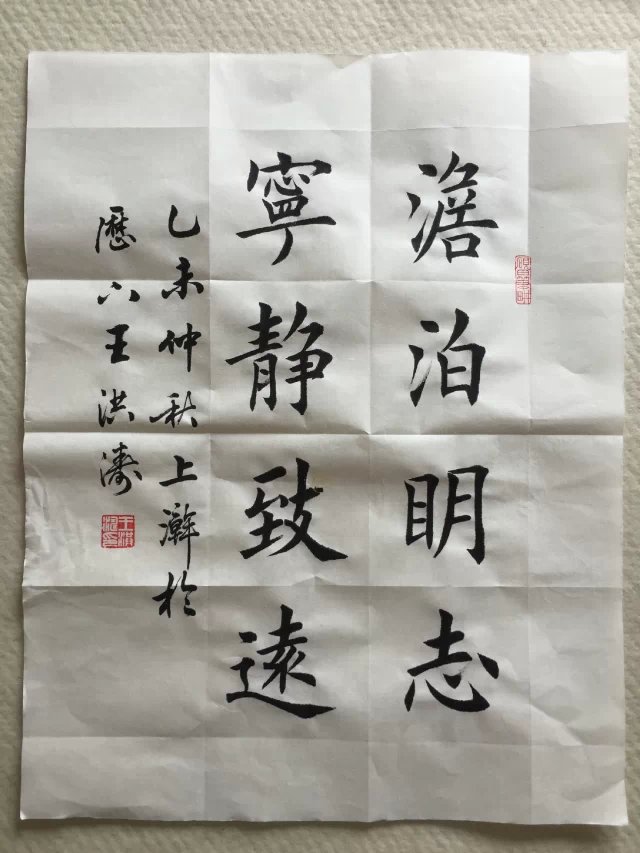 澹泊眀志
寧静致遠
乙未仲秋上澣於
歷下王洪濤